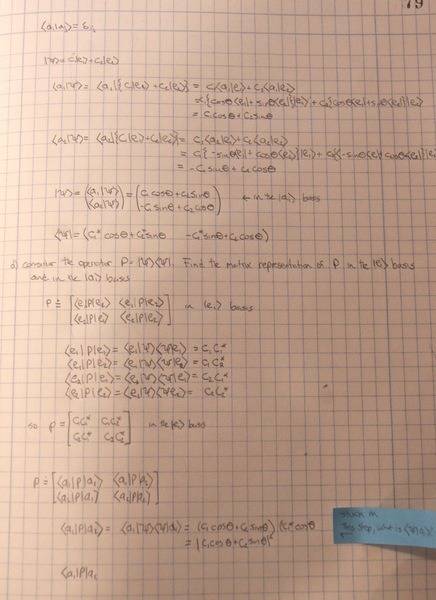 79
⟨aᵢ|aⱼ⟩ = δᵢⱼ
|ψ⟩ = c₁|e₁⟩ + c₂|e₂⟩
⟨a₁|ψ⟩ = ⟨a₁|{c₁|e₁⟩ + c₂|e₂⟩} = c₁⟨a₁|e₁⟩ + c₂⟨a₁|e₂⟩
= c₁{cosθ⟨e₁| + sinθ⟨e₂|}|e₁⟩ + c₂{cosθ⟨e₁| + sinθ⟨e₂|}|e₂⟩
= c₁cosθ + c₂sinθ
⟨a₂|ψ⟩ = ⟨a₂|{c₁|e₁⟩ + c₂|e₂⟩} = c₁⟨a₂|e₁⟩ + c₂⟨a₂|e₂⟩
= c₁{-sinθ⟨e₁| + cosθ⟨e₂|}|e₁⟩ + c₂{-sinθ⟨e₁| + cosθ⟨e₂|}|e₂⟩
= -c₁sinθ + c₂cosθ
|ψ⟩ = (⟨a₁|ψ⟩ = (c₁cosθ + c₂sinθ
⟨a₂|ψ⟩) -c₁sinθ + c₂cosθ) ← in the |aᵢ⟩ basis
⟨ψ| = (c₁* cosθ + c₂* sinθ -c₁* sinθ + c₂ cosθ)
consider the operator P = |ψ⟩⟨ψ|. Find the matrix representation of P in the |e⟩ basis
and in the |aᵢ⟩ basis
P ≐ [⟨e₁|P|e₁⟩ ⟨e₁|P|e₂⟩
⟨e₂|P|e₁⟩ ⟨e₂|P|e₂⟩] in |eᵢ⟩ basis
⟨e₁|P|e₁⟩ = ⟨e₁|ψ⟩⟨ψ|e₁⟩ = c₁c₁*
⟨e₁|P|e₂⟩ = ⟨e₁|ψ⟩⟨ψ|e₂⟩ = c₁c₂*
⟨e₂|P|e₁⟩ = ⟨e₂|ψ⟩⟨ψ|e₁⟩ = c₂c₁*
⟨e₂|P|e₂⟩ = ⟨e₂|ψ⟩⟨ψ|e₂⟩ = c₂c₂*
so P ≐ [c₁c₁* c₁c₂*
c₂c₁* c₂c₂*] in the |e⟩ basis
P ≐ [⟨a₁|P|a₁⟩ ⟨a₁|P|a₂⟩
⟨a₂|P|a₁⟩ ⟨a₂|P|a₂⟩]
⟨a₁|P|a₁⟩ = ⟨a₁|ψ⟩⟨ψ|a₁⟩ = (c₁cosθ + c₂sinθ)(c₁* cosθ
= |c₁cosθ + c₂sinθ|²
⟨a₁|P|a₂
stuck in
This step, what is ⟨ψ|a₁⟩?